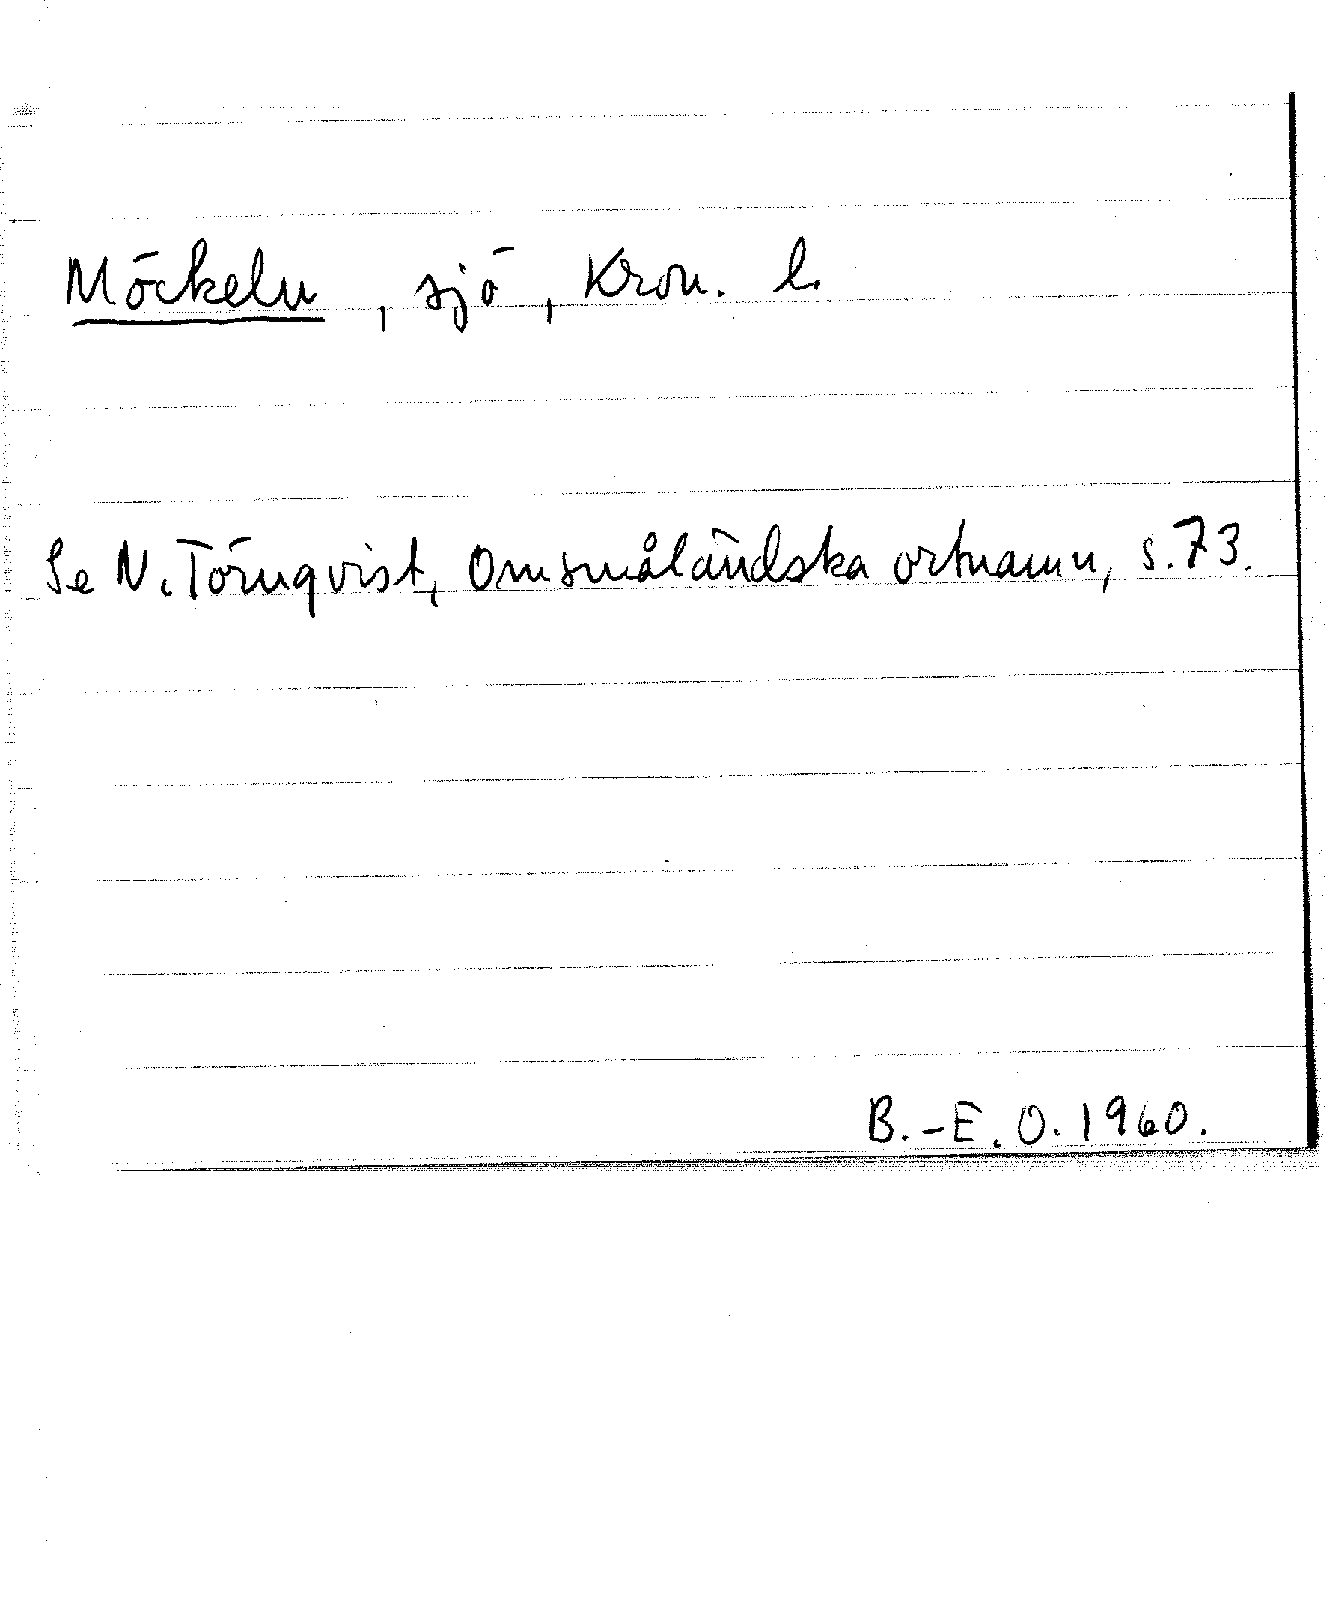 Möckeln, sjö, Kron. l.
Se N. Törnqvist, Om småländska ortnamn, s. 73.
B.-E. O. 1960.